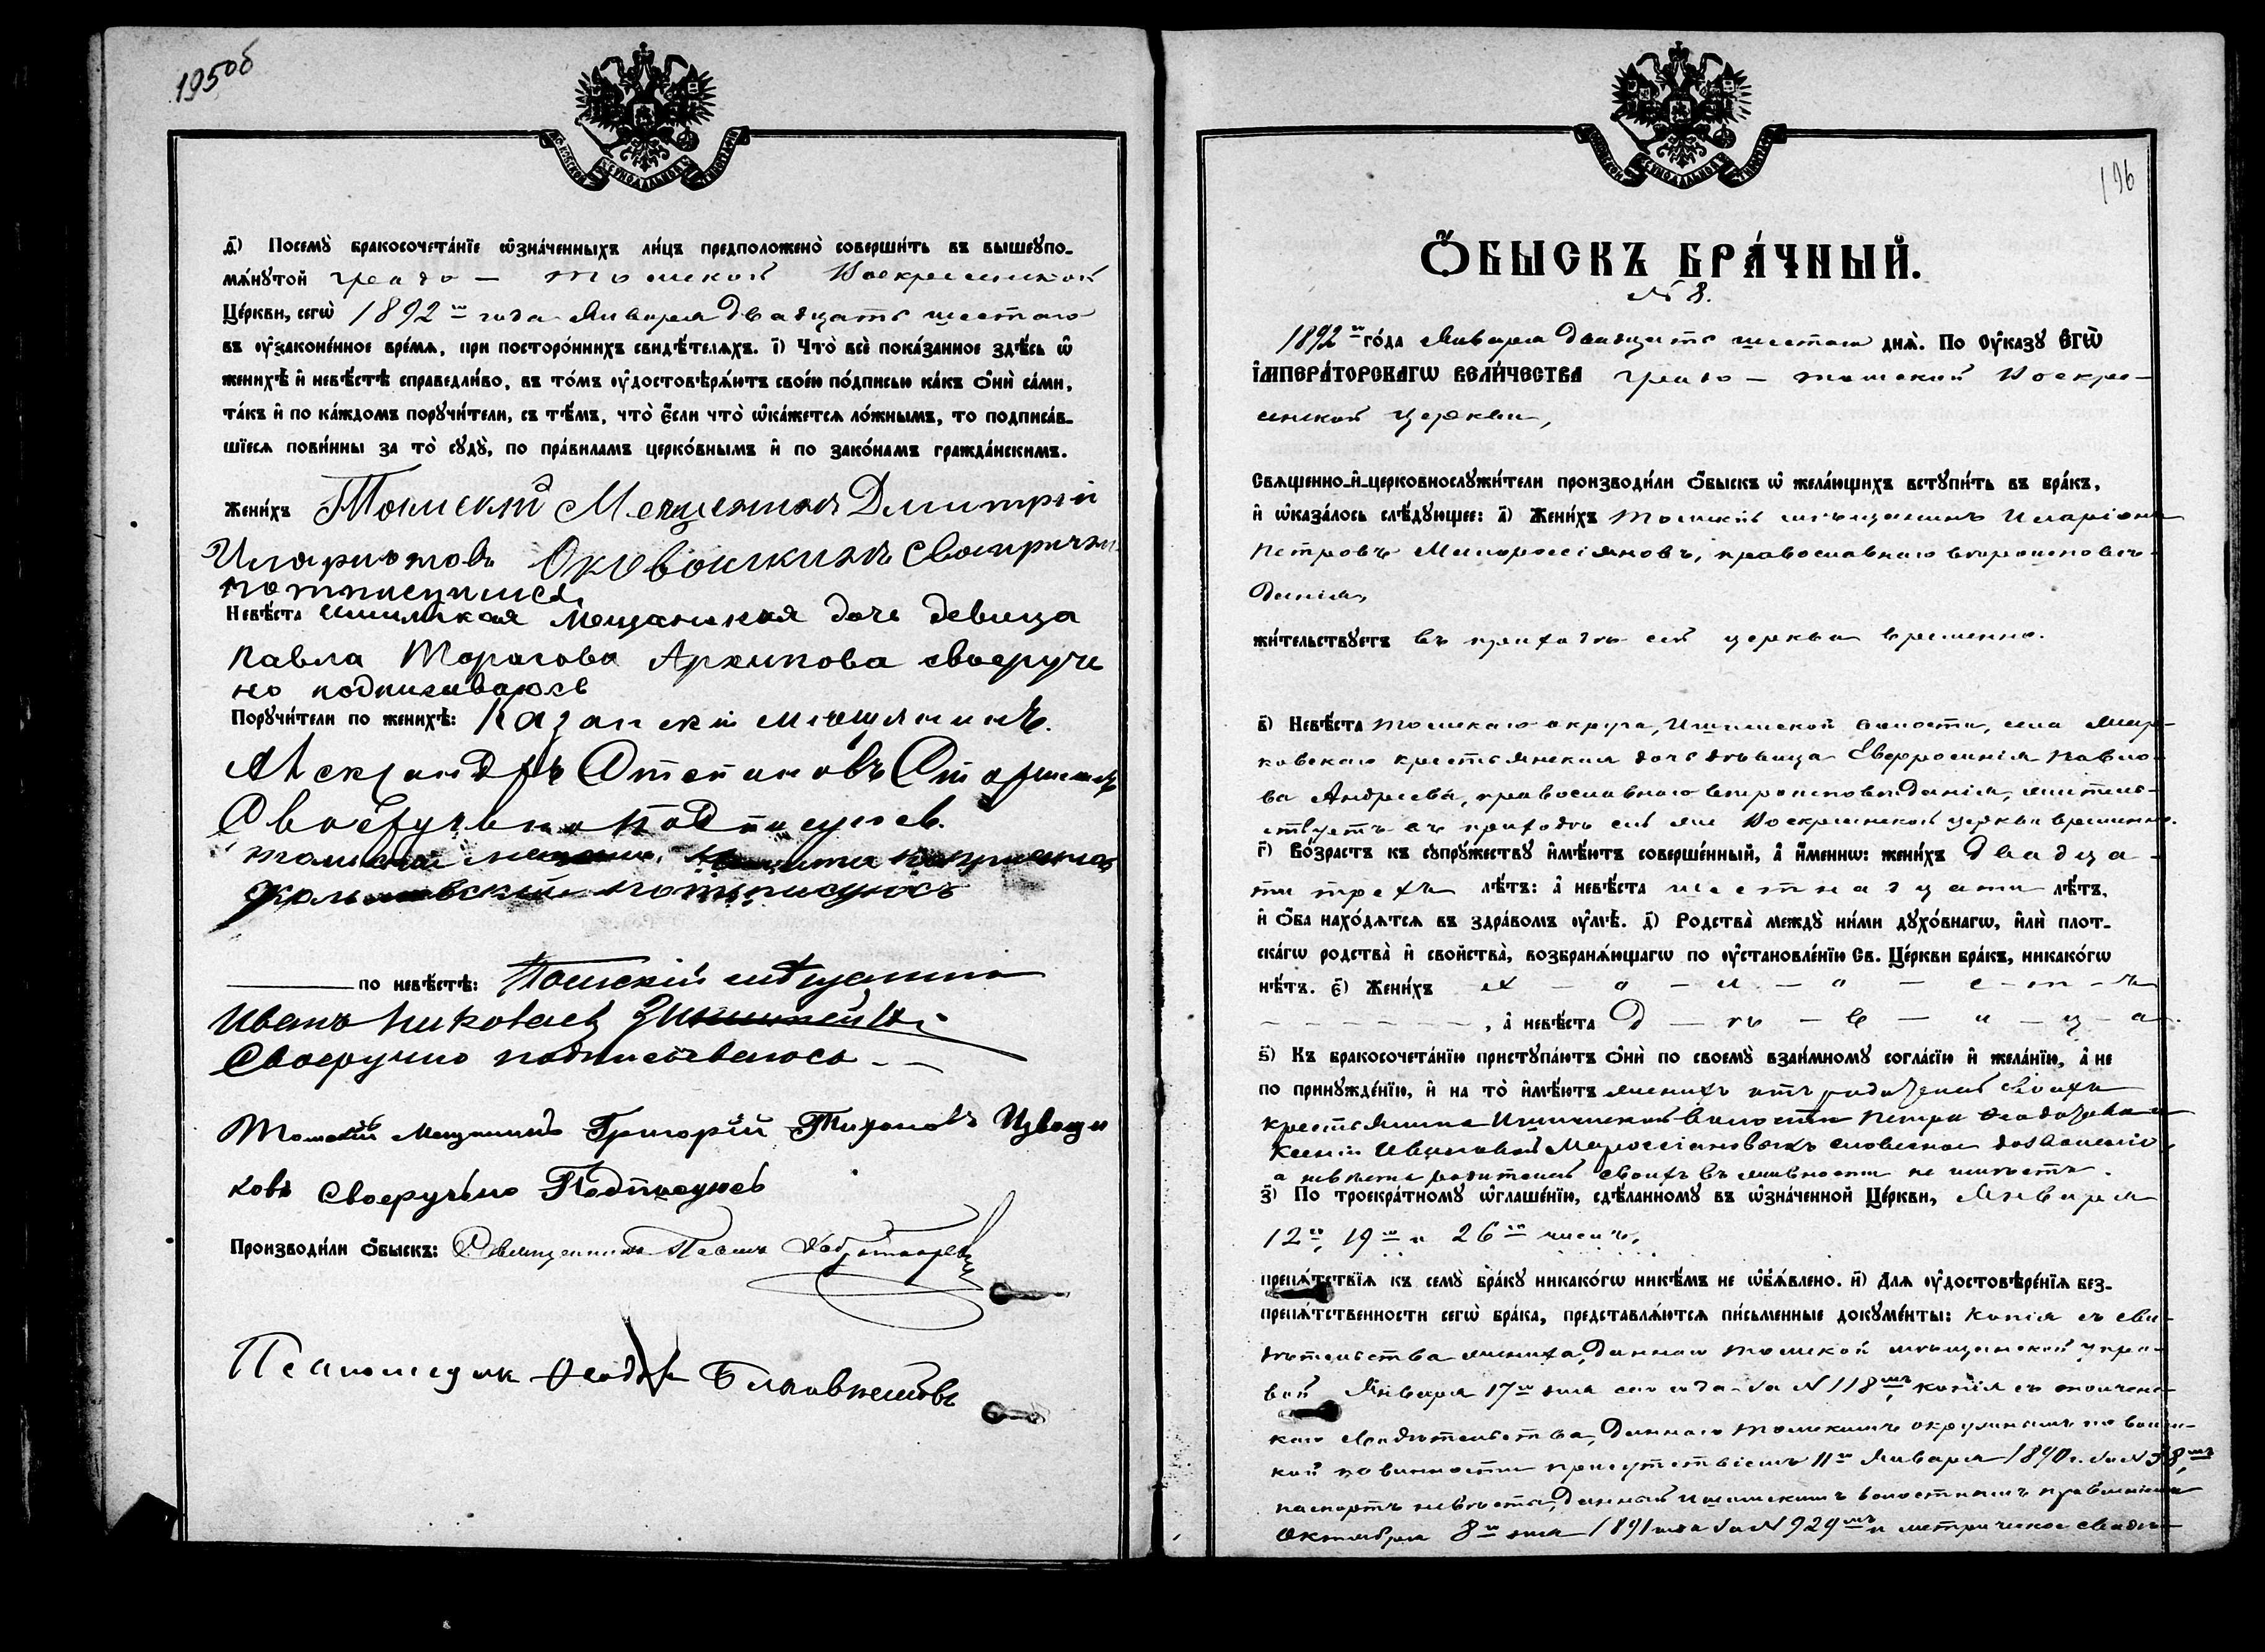 195об
д҃) Посемꙋ̀ бракосочета́нїе ѡ҆зна́ченныхъ ли́цъ предположено̀ соверши́ть въ вышеꙋпо-
мѧ́нꙋтой градо - Томской Воскресенской
Це́ркви, сегѡ̀ 1892 го года Января двадцать шестаго
въ ᲂу҆зако́ненное вре́мѧ, при посторо́ннихъ свидѣ́телѧхъ. і҃) Что̀ всѐ пока́занное здѣ́сь ѡ҆
женихѣ̀ и҆ невѣ́стѣ справедли́во, въ то́мъ ᲂу҆достовѣрѧ́ютъ свое́ю по́дписью ка́къ ѻ҆нѝ са́ми,
та́къ и҆ по ка́ждомъ порꙋчи́тели, съ тѣ́мъ, что̀ є҆́сли что̀ ѡ҆ка́жетсѧ ло́жнымъ, то подписа́в-
шїесѧ пови́нны за то̀ сꙋдꙋ̀, по пра́виламъ церко́внымъ и҆ по зако́намъ гражда́нскимъ.
Жени́хъ Томский Мещенинъ Дмитрий
Илариотовъ
Невѣ́ста Мещанская доче девица
Павла Торасова Архипова своеручи
но подписиваюсь
Порꙋчи́тели по женихѣ̀: Казански мещянинъ.
Александръ Степановъ
Своеручьно подписуюсь.
потписуюсъ
по невѣ́стѣ: Томский мѣщанинъ
Иванъ Николаев
Своеручно подписываюсь
Томский Мещанинъ Григорий Тихоновъ Извощи
ковъ Своеручьно Подписуюсь
Производи́ли ѻ҆́быскъ: Священникъ Павелъ
Псаломщик Ѳеодоръ
196
Ѻ҆́БЫСКЪ БРА́ЧНЫЙ.
№ 8.
1892 го го́да Января двадцать шестаго днѧ̀. По ᲂу҆ка́зꙋ Є҆гѡ̀
І҆мпера́торскагѡ Вели́чества градо - Томской Воскре-
сенской церкви,
Свѧщенно-и҆-церковнослꙋжи́тели производи́ли ѻ҆́быскъ ѡ҆ жела́ющихъ встꙋпи́ть въ бра́къ,
и҆ ѡ҆каза́лось слѣ́дꙋющее: а҃) Жени́хъ Томскій мѣщанинъ Иларіонъ
Петровъ Малороссіяновъ, православнаго вѣроисповѣ-
данія,
жи́тельствꙋетъ въ приходѣ сей церкви временно.
в҃) Невѣ́ста Томскаго округа, Ишимской волости, села Мир-
ковскаго крестьянская дочь дѣвица Евфросинія Павло-
ва Андреева, православнаго вѣроисповѣданія, житель-
ствуетъ въ приходѣ сей же Воскресенской церкви временно.
г҃) Во́зрастъ къ сꙋпрꙋ́жествꙋ и҆мѣ́ютъ соверше́нный, а҆ и҆́меннѡ: жени́хъ двадца-
ти трехъ лѣ́тъ: а҆ невѣ́ста шестнадцати лѣ́тъ,
и҆ ѻ҆́ба нахо́дѧтсѧ въ здра́вомъ ᲂу҆мѣ̀. д҃) Родства̀ междꙋ̀ ни́ми дꙋхо́внагѡ, и҆лѝ плот-
ска́гѡ родства̀ и҆ свойства̀, возбранѧ́ющагѡ по ᲂу҆становле́нїю Св. Це́ркви бра́къ, никако́гѡ
нѣ́тъ. є҃) Жени́хъ х - о - л - о - с - т - ъ
- - - - - - - , а҆ невѣ́ста д - ѣ - в - и - ц - а.
ѕ҃) Къ бракосочета́нїю пристꙋпа́ютъ ѻ҆нѝ по своемꙋ̀ взаи́мномꙋ согла́сїю и҆ жела́нїю, а҆ не
по принꙋжде́нїю, и҆ на то̀ и҆мѣ́ютъ женихъ отъ родителей своихъ
крестьянина Ишимской волости Петра
Ивановой словесное дозволеніе,
а невѣста родителей своихъ въ живности не имѣетъ.
з҃) По троекра́тномꙋ ѡ҆глаше́нїю, сдѣ́ланномꙋ въ ѡ҆зна́ченной Це́ркви, Января
12 го, 19 го и 26 го чиселъ,
препѧ́тствїѧ къ семꙋ̀ бра́кꙋ никако́гѡ никѣ́мъ не ѡ҆б̾ѧ́влено. и҃) Длѧ ᲂу҆достовѣре́нїѧ без-
препѧ́тственности сегѡ̀ бра́ка, представлѧ́ютсѧ пи́сьменные докꙋме́нты: копія съ сви-
дѣтельства жениха, даннаго Томской мѣщанской упра-
вой Января 17 го дня сего года за № 118 мъ, копія съ
свидѣтельства, даннаго Томскимъ окружнымъ по воин-
кой повинности присутствіемъ 11 го Января 1890 г. за № 38 мъ,
паспортъ невѣсты, данный Ишимскимъ волостнымъ правленіемъ
Октября 8 го дня 1891 года за № 929 мъ и метрическое свидѣ-